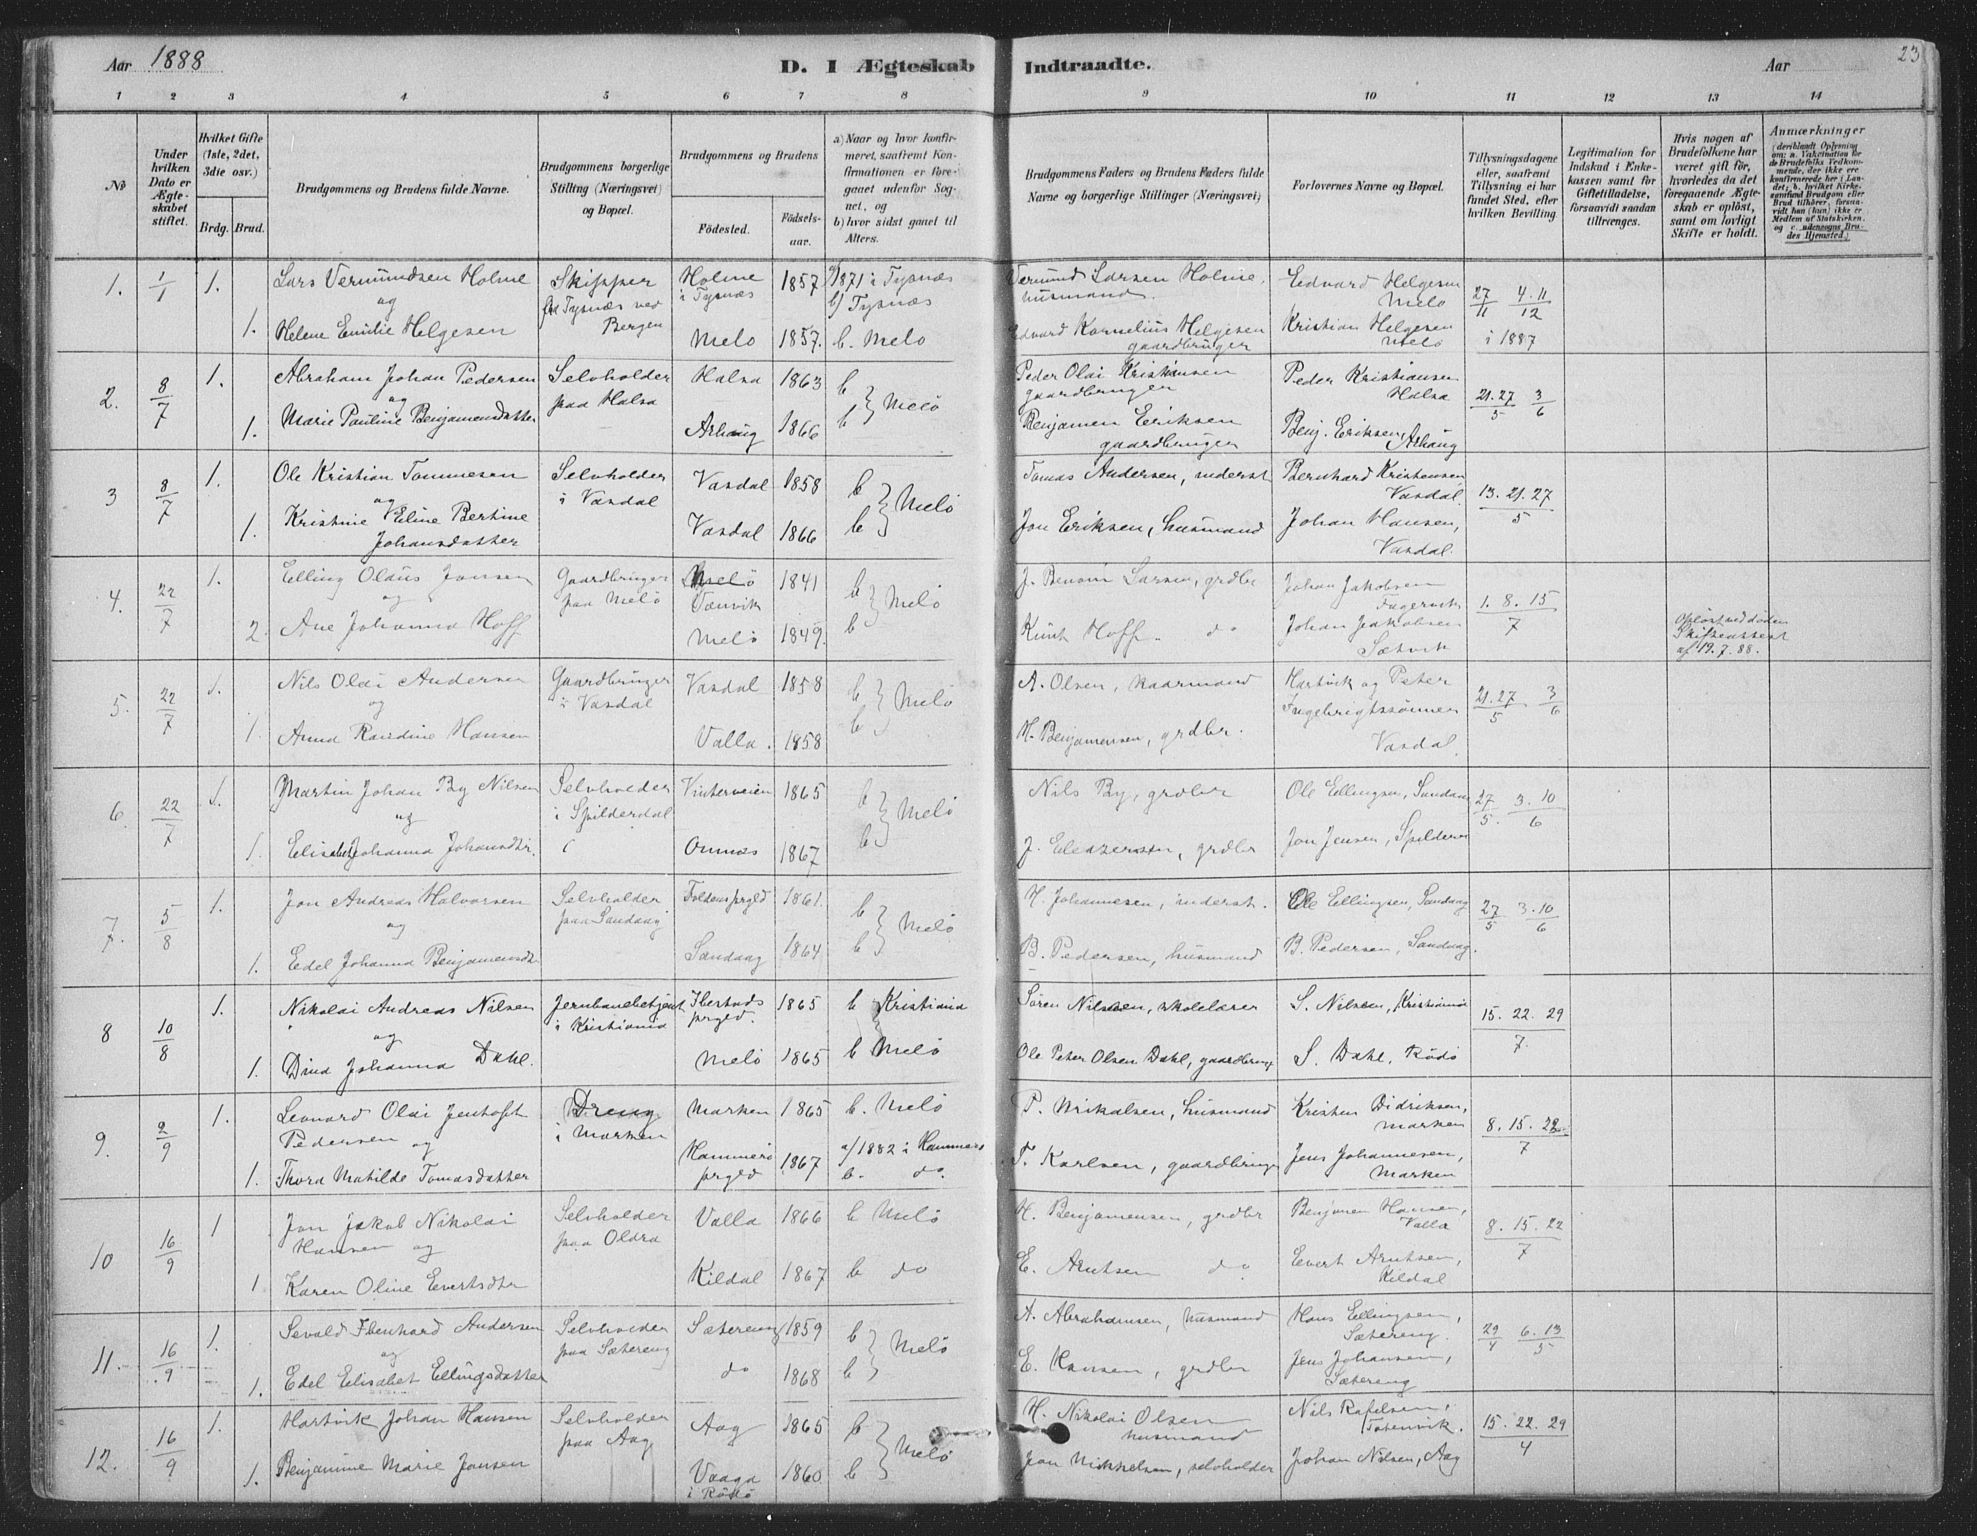 Aar 1888
D. I Ægteskab Indtraadte.
Aar
23
1 2 3 4 5 6 7 8 9 10 11 12 13 14
No
Under hvilken Dato er Ægteskabet stiftet.
Hvilket Gifte (1ste, 2det, 3die osv.)
Brdg. Brud.
Brudgommens og Brudens fulde Navne.
Brudgommens borgerlige Stilling (Næringsvei) og Bopæl.
Brudgommens og Brudens
Fødested.
Fødselsaar.
a) Naar og hvor konfirmeret, saafremt Konfirmationen er foregaaet udenfor Sognet, og
b) hvor sidst gaaet til Alters.
Brudgommens Faders og Brudens Faders fulde Navne og borgerlige Stillinger (Næringsvei)
Forlovernes Navne og Bopæl.
Tillysningsdagene eller, saafremt Tillysning ei har fundet Sted, efter hvilken Bevilling
Legitimation for Indskud i Enkekassen samt for Giftetilladelse, forsaavidt saadan tiltrænges.
Hvis nogen af Brudefolkene har været gift før, hvorledes da det foregaaende Ægteskab er opløst, samt om lovligt Skifte er holdt.
Anmærkninger
(deriblandt Oplysning om: a. Vakcination for de Brudefolks Vedkommende, der ikke ere konfirmerede her i Landet; b. hvilket Kirkesamfund Brudgom eller Brud tilhører, forsaavidt han (hun) ikke er Medlem af Statskirken, og c. udensogns Brudes Hjemsted.)
1. 1/1 1. Lars Vermundsen Holme Skipper Holme i Tysnæs 1857 a/ 1871 i Tysnæs Vermund Larsen Holme, husmand. Edvard Helgesen Melø 27/11 4.11/12
og fra Tysnæs ved Bergen b/ Tysnæs
1. Helene Emilie Helgesen Melø 1857. b. Melø Edvard Kornelius Helgesen gaardbruger Kristian Helgesen Melø i 1887
2. 8/7 1. Abraham Johan Pedersen Selvholder paa Halsa Halsa 1863 b Peder Olai Kristiansen gaardbruger Peder Kristiansen Halsa 21.27/5 3/6
og Melø
1. Marie Pauline Benjamensdatter Arhaug 1866 b Benjamen Eriksen gaardbruger Benj. Eriksen, Arhaug
3 8/7 1. Ole Kristian Tommesen Selvholder i Vasdal Vasdal 1858 b Tomas Andersen, inderst Bernhard Kristensen Vasdal 13.21.27/5
og Melø
1. Kristine Eline Bertine Johansdatter Vasdal 1866 b Jon Eriksen, husmand Johan Hansen, Vasdal.
4. 22/7 1. Elling Olaus Jonsen Gaardbruger paa Melø Melø Vænvik 1841 b J. Benoni Larsen, grdbr Johan Jakobsen Fagervik 1.8.15/7
og Melø
2. Ane Johanna Hoff Melø 1849. b Knut Hoff. do Johan Jakobsen Sætvik Opløst ved døden Skifteattest af 19.7.88.
5. 22/7 1. Nils Olai Andersen Gaardbruger i Vasdal Vasdal 1858 b A. Olsen, kaarmand Hartvik og Peter Ingebrigtssønner Vasdal. 21.27/5 3/6
og Melø
1. Anna Randine Hansen Valla. 1858 b H. Benjamensen, grdbr.
6 22/7 1. Martin Johan By Nilsen Selvholder i Spilderdal Vinterveien 1865 b Nils By, grdbr Ole Ellingsen, Sandaag 27/5. 3.10/6
og Melø
1. Elisabet Johanna Johansdtr. Onnøs 1867 b J. Eleazersen, grdbr Jon Jensen,
7. 5/8 1. Jon Andreas Halvorsen Selvholder paa Sandaag Foldens prgld 1861. b H. Johannesen, inderst. Ole Ellingsen, Sandaag 27/5 3.10/6
og Melø
1. Edel Johanna Benjamensdtr Sandaag 1864 b B. Pedersen, husmand B. Pedersen, Sandaag.
8 10/8 1. Nikolai Andreas Nilsen Jernbanebetjent i Kristiania Ibestads prgld. 1865 b Kristiania Søren Nilsen, skolelærer S. Nilsen, Kristiania 15.22.29/7.
og
1. Dina Johanna Dahl. Melø 1865 b Melø Ole Peter Olsen Dahl, gaardbrug S. Dahl, Rødø
9. 2/9 1. Leonard Olai Jentoft Pedersen Dreng i Marken Marken 1865 b. Melø P. Mikalsen, husmand Kristen Didriksen, Marken 8.15.22/7
og
1. Thora Matilde Tomasdatter Hammerø prgld 1867 a/ 1882 i Hammerø b. do. T. Karlsen, gaardbruger Jens Johannesen, Marken
10 16/9 1 Jon Jakob Nikolai Hansen Selvholder paa Oldra Valla 1866 b Melø H. Benjamensen, grdbr Benjamen Hansen, Valla 8.15.22/7
og
1. Karen Oline Evertsdtr Kildal 1867 b do E. Arntsen do Evert Arntsen, Kildal
11. 16/9 1. Sevald Ibenhard Andersen Selvholder paa Sætereng Sætereng 1859 b A. Abrahamsen, husmand Hans Ellingsen, Sætereng. 29/4 6.13/5
og Melø
1. Edel Elisabet Ellingsdatter do 1868 b E. Hansen, grdbr Jens Johansen, Sætereng
12. 16/9 1. Hartvik Johan Hansen Selvholder paa Aag Aag 1865 b H. Nikolai Olsen husmand Nils Rafelsen, 15.22.29/4
Melø
1. Benjamine Marie Jonsen Vaaga i Rødø 1860 b Jon Mikkelsen, selvholder Johan Nilsen, Aag